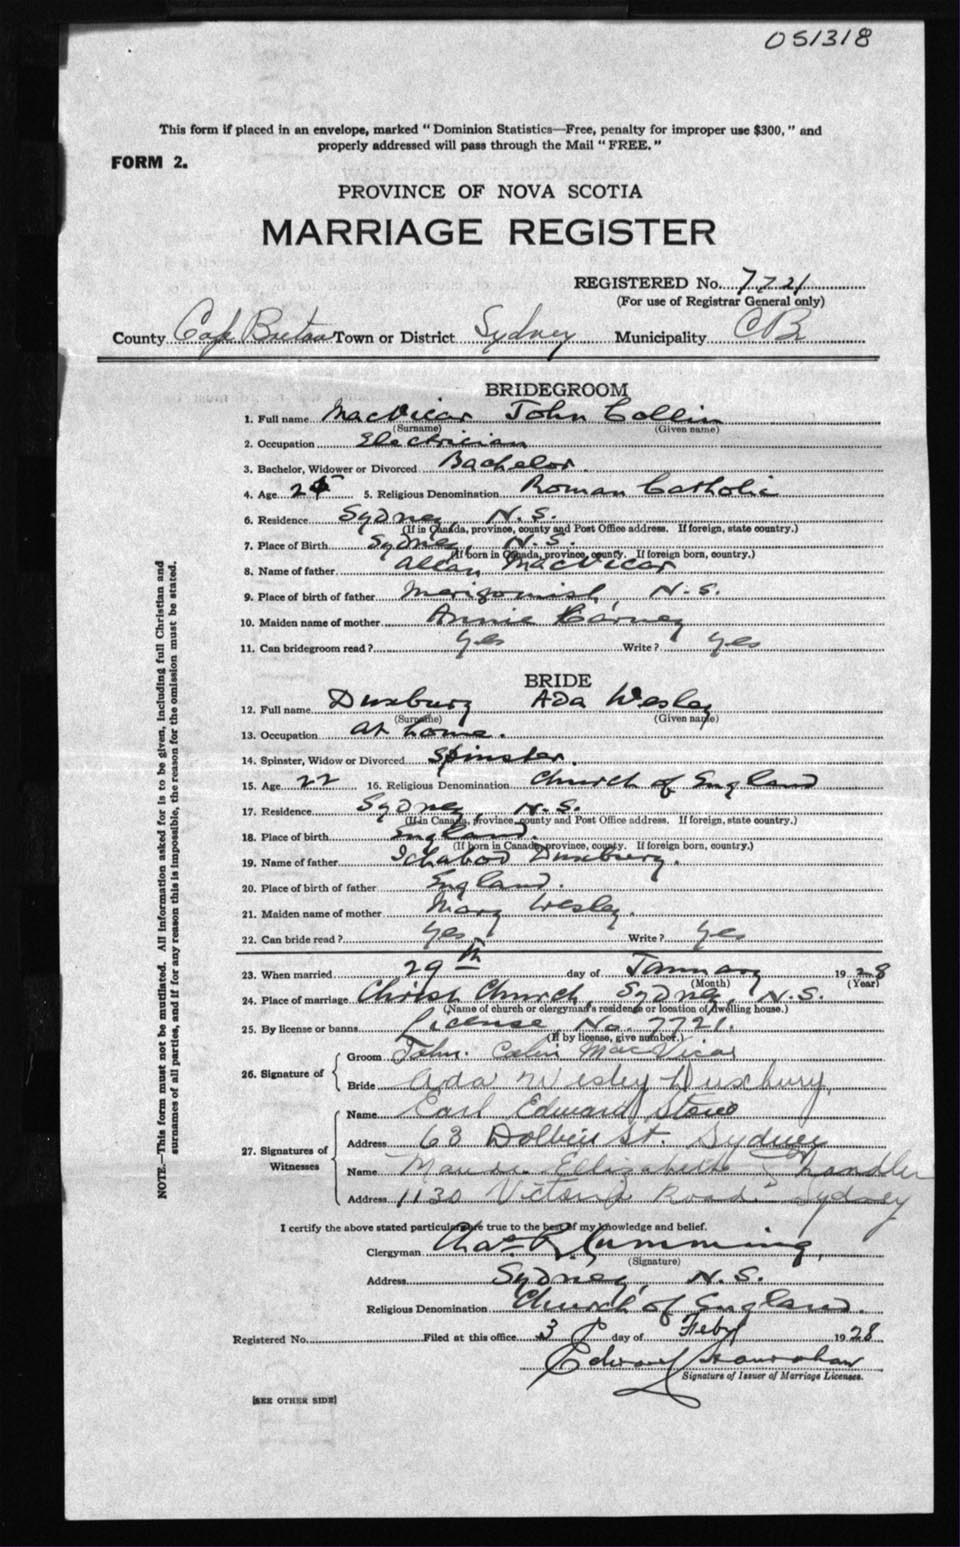 051318
This form if placed in an envelope, marked "Dominion Statistics—Free, penalty for improper use $300," and
properly addressed will pass through the Mail "FREE."
FORM 2.
PROVINCE OF NOVA SCOTIA
MARRIAGE REGISTER
REGISTERED No. 7721
(For use of Registrar General only)
County Cape Breton Town or District Sydney Municipality CB
BRIDEGROOM
1. Full name MacVicar John Collin
(Surname) (Given name)
2. Occupation Electrician
3. Bachelor, Widower or Divorced Bachelor.
4. Age 25 5. Religious Denomination Roman Catholic
6. Residence Sydney, N.S.
(If in Canada, province, county and Post Office address. If foreign, state country.)
7. Place of Birth Sydney, N.S.
(If born in Canada, province, county. If foreign born, country.)
8. Name of father Allan MacVicar
9. Place of birth of father Merigomish, N.S.
10. Maiden name of mother Annie
11. Can bridegroom read? yes Write? yes
BRIDE
12. Full name Duxbury Ada Wesley
(Surname) (Given name)
13. Occupation At home.
14. Spinster, Widow or Divorced Spinster.
15. Age 22 16. Religious Denomination Church of England
17. Residence Sydney, N.S.
(If in Canada, province, county and Post Office address. If foreign, state country.)
18. Place of birth England.
(If born in Canada, province, county. If foreign born, country.)
19. Name of father Ichabod Duxbury.
20. Place of birth of father England.
21. Maiden name of mother Mary Wesley.
22. Can bride read? Yes Write? Yes
23. When married 29th day of January 1928
(Month) (Year)
24. Place of marriage Christ Church, Sydney, N.S.
(Name of church or clergyman's residence or location of dwelling house.)
25. By license or banns License, No. 7721.
(If by license, give number.)
26. Signature of
Groom John Colin MacVicar
Bride Ada Wesley Duxbury
27. Signatures of Witnesses
Name Earl Edward
Address 63 St. Sydney
Name Elizabeth Chandler
Address 1130 Victoria Road Sydney
I certify the above stated particulars are true to the best of my knowledge and belief.
Clergyman Chas R. Cumming,
(Signature)
Address Sydney, N.S.
Religious Denomination Church of England.
Registered No. Filed at this office 3 day of Feby 1928
Edward Hanrahan
Signature of Issuer of Marriage Licenses.
[SEE OTHER SIDE]
NOTE.—This form must not be mutilated. All information asked for is to be given, including full Christian and
surnames of all parties, and if for any reason this is impossible, the reason for the omission must be stated.